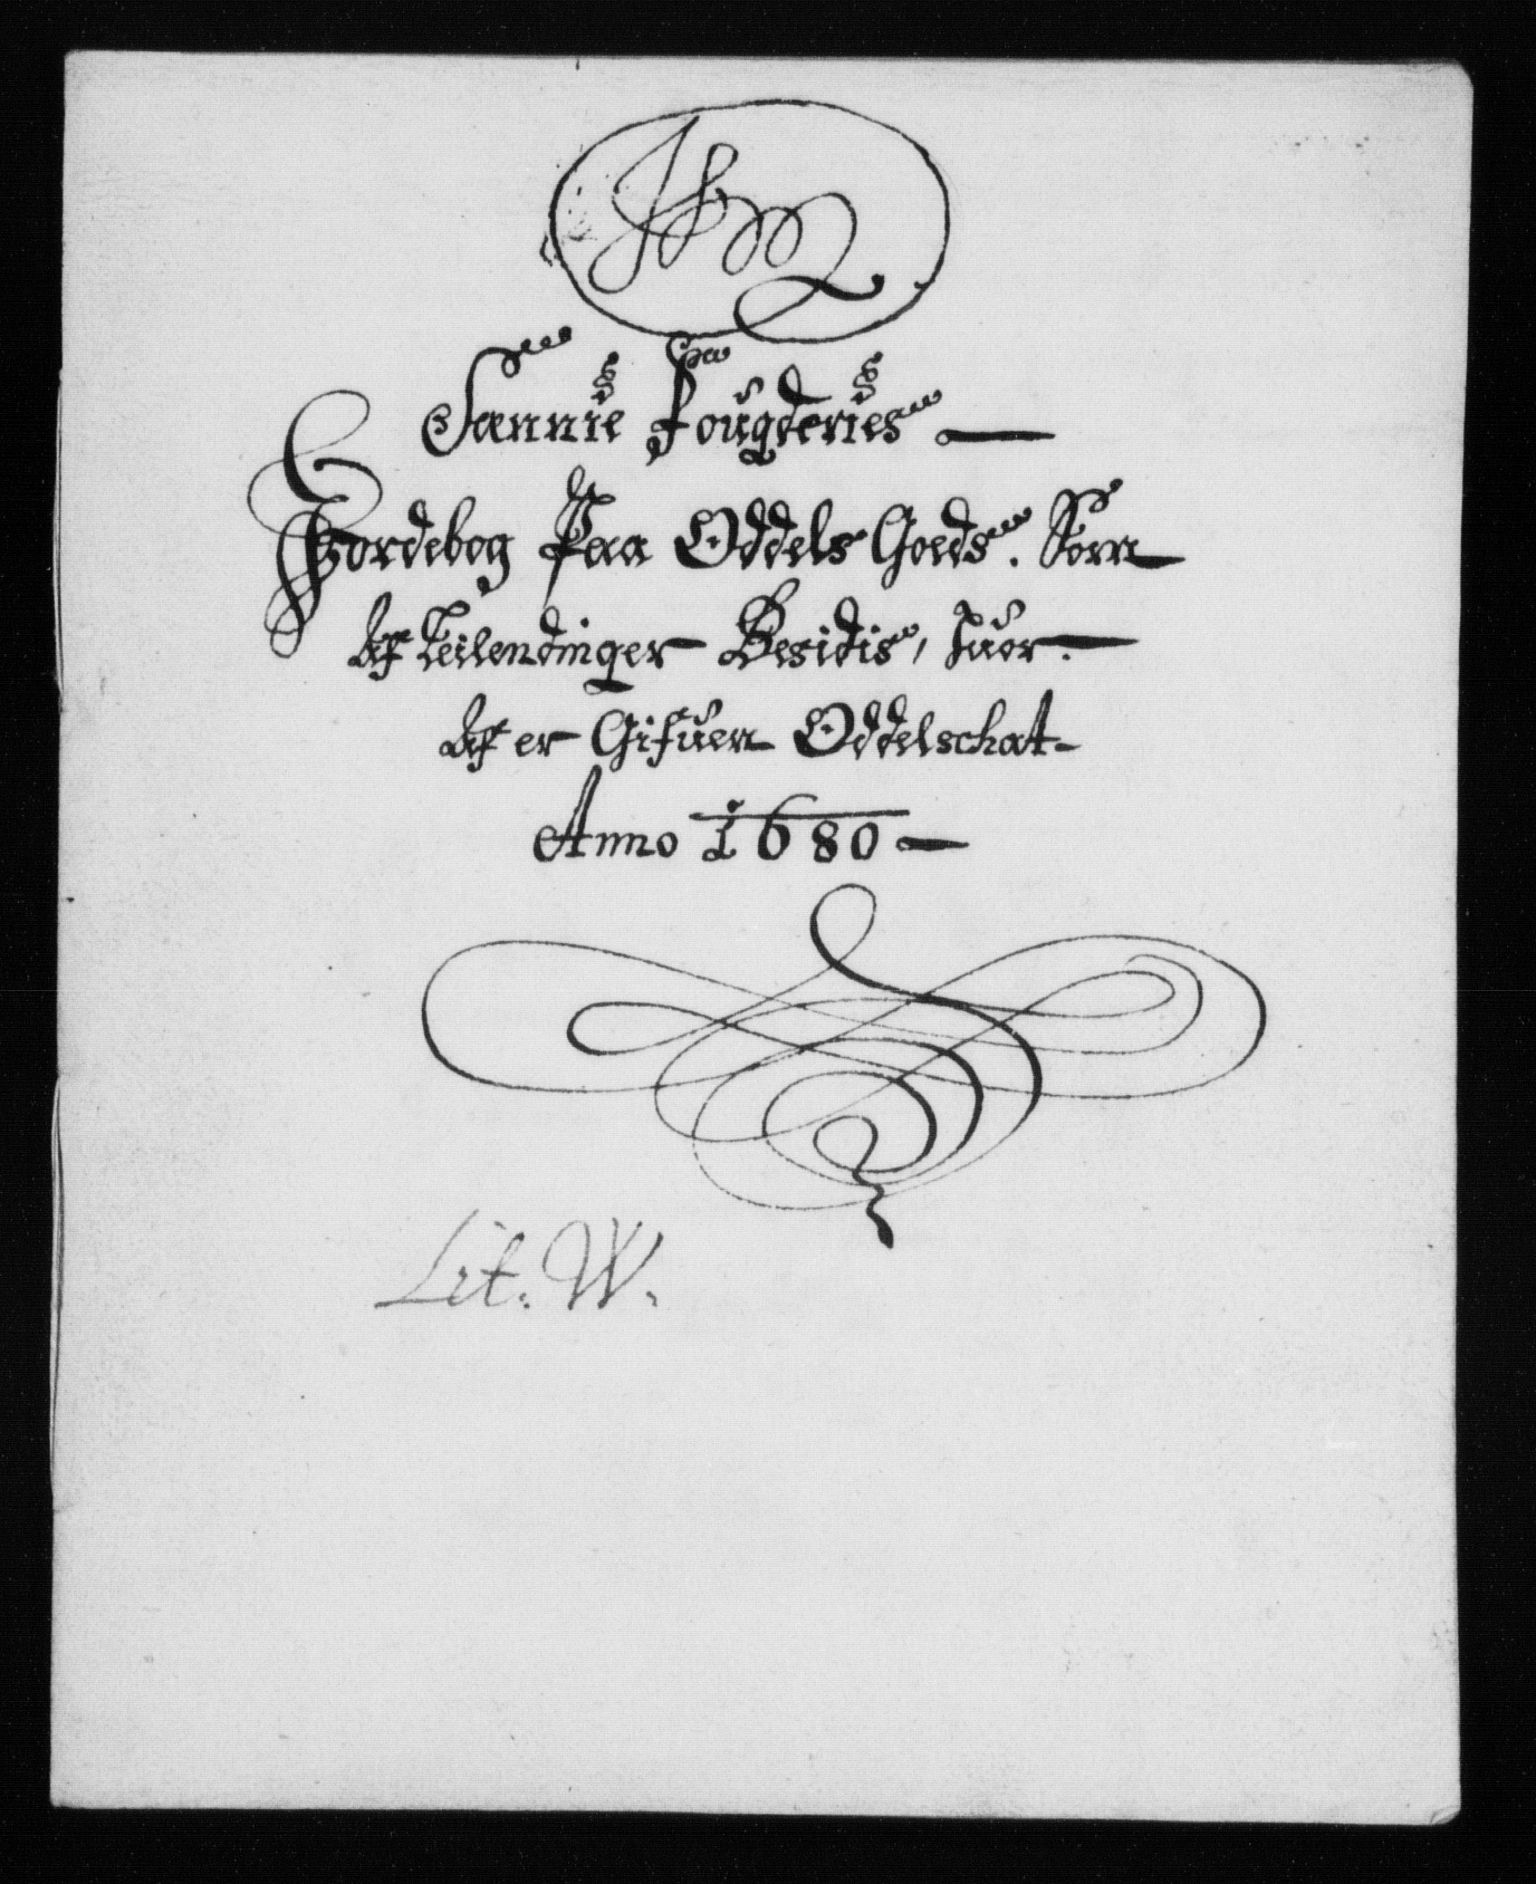 Sænnie Fougderies
Jordebog Paa Oddels Goeds. Som
Af Leilendinger Besidis, huor
Af er Gifuen Oddelschat
Anno 1680
Lit. W.